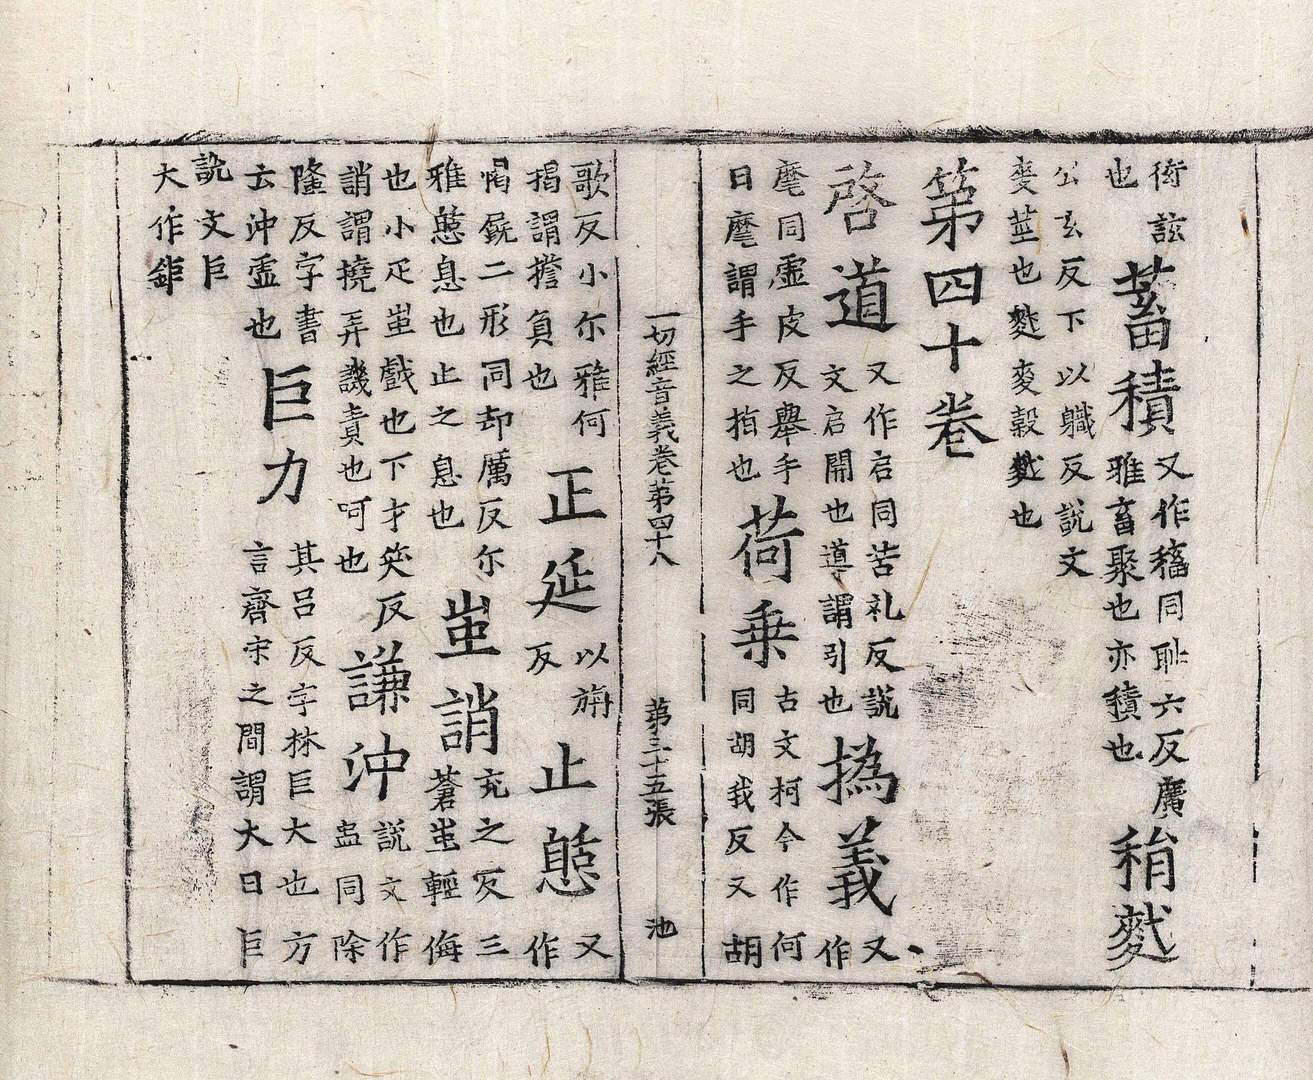 術詃
也
蓄積
又作稸同恥六反廣
雅畜聚也亦積也
䅌䴬
公玄反下以軄反說文
麥莖也䴬麥穀䴬也
第四十卷
啓道
又作启同苦礼反說
文启開也導謂引也
撝義
又
作
麾同虛皮反舉手
曰麾謂手之指也
荷乗
古文柯今作何
同胡我反又胡
一切經音義卷第四十八 第三十五張 池
歌反小尒雅何
揭謂擔負也
正延
以旃
反
止憩
又
作
愒㞏二形同却厲反尒
雅憩息也止之息也
蚩誚
充之反三
蒼蚩輕侮
也小疋蚩戲也下才笑反
誚謂撓弄譏責也呵也
謙沖
說文作
盅同除
隆反字書
云沖虛也
巨力
其吕反字林巨大也方
言齊宋之間謂大曰巨
說文巨
大作鉅